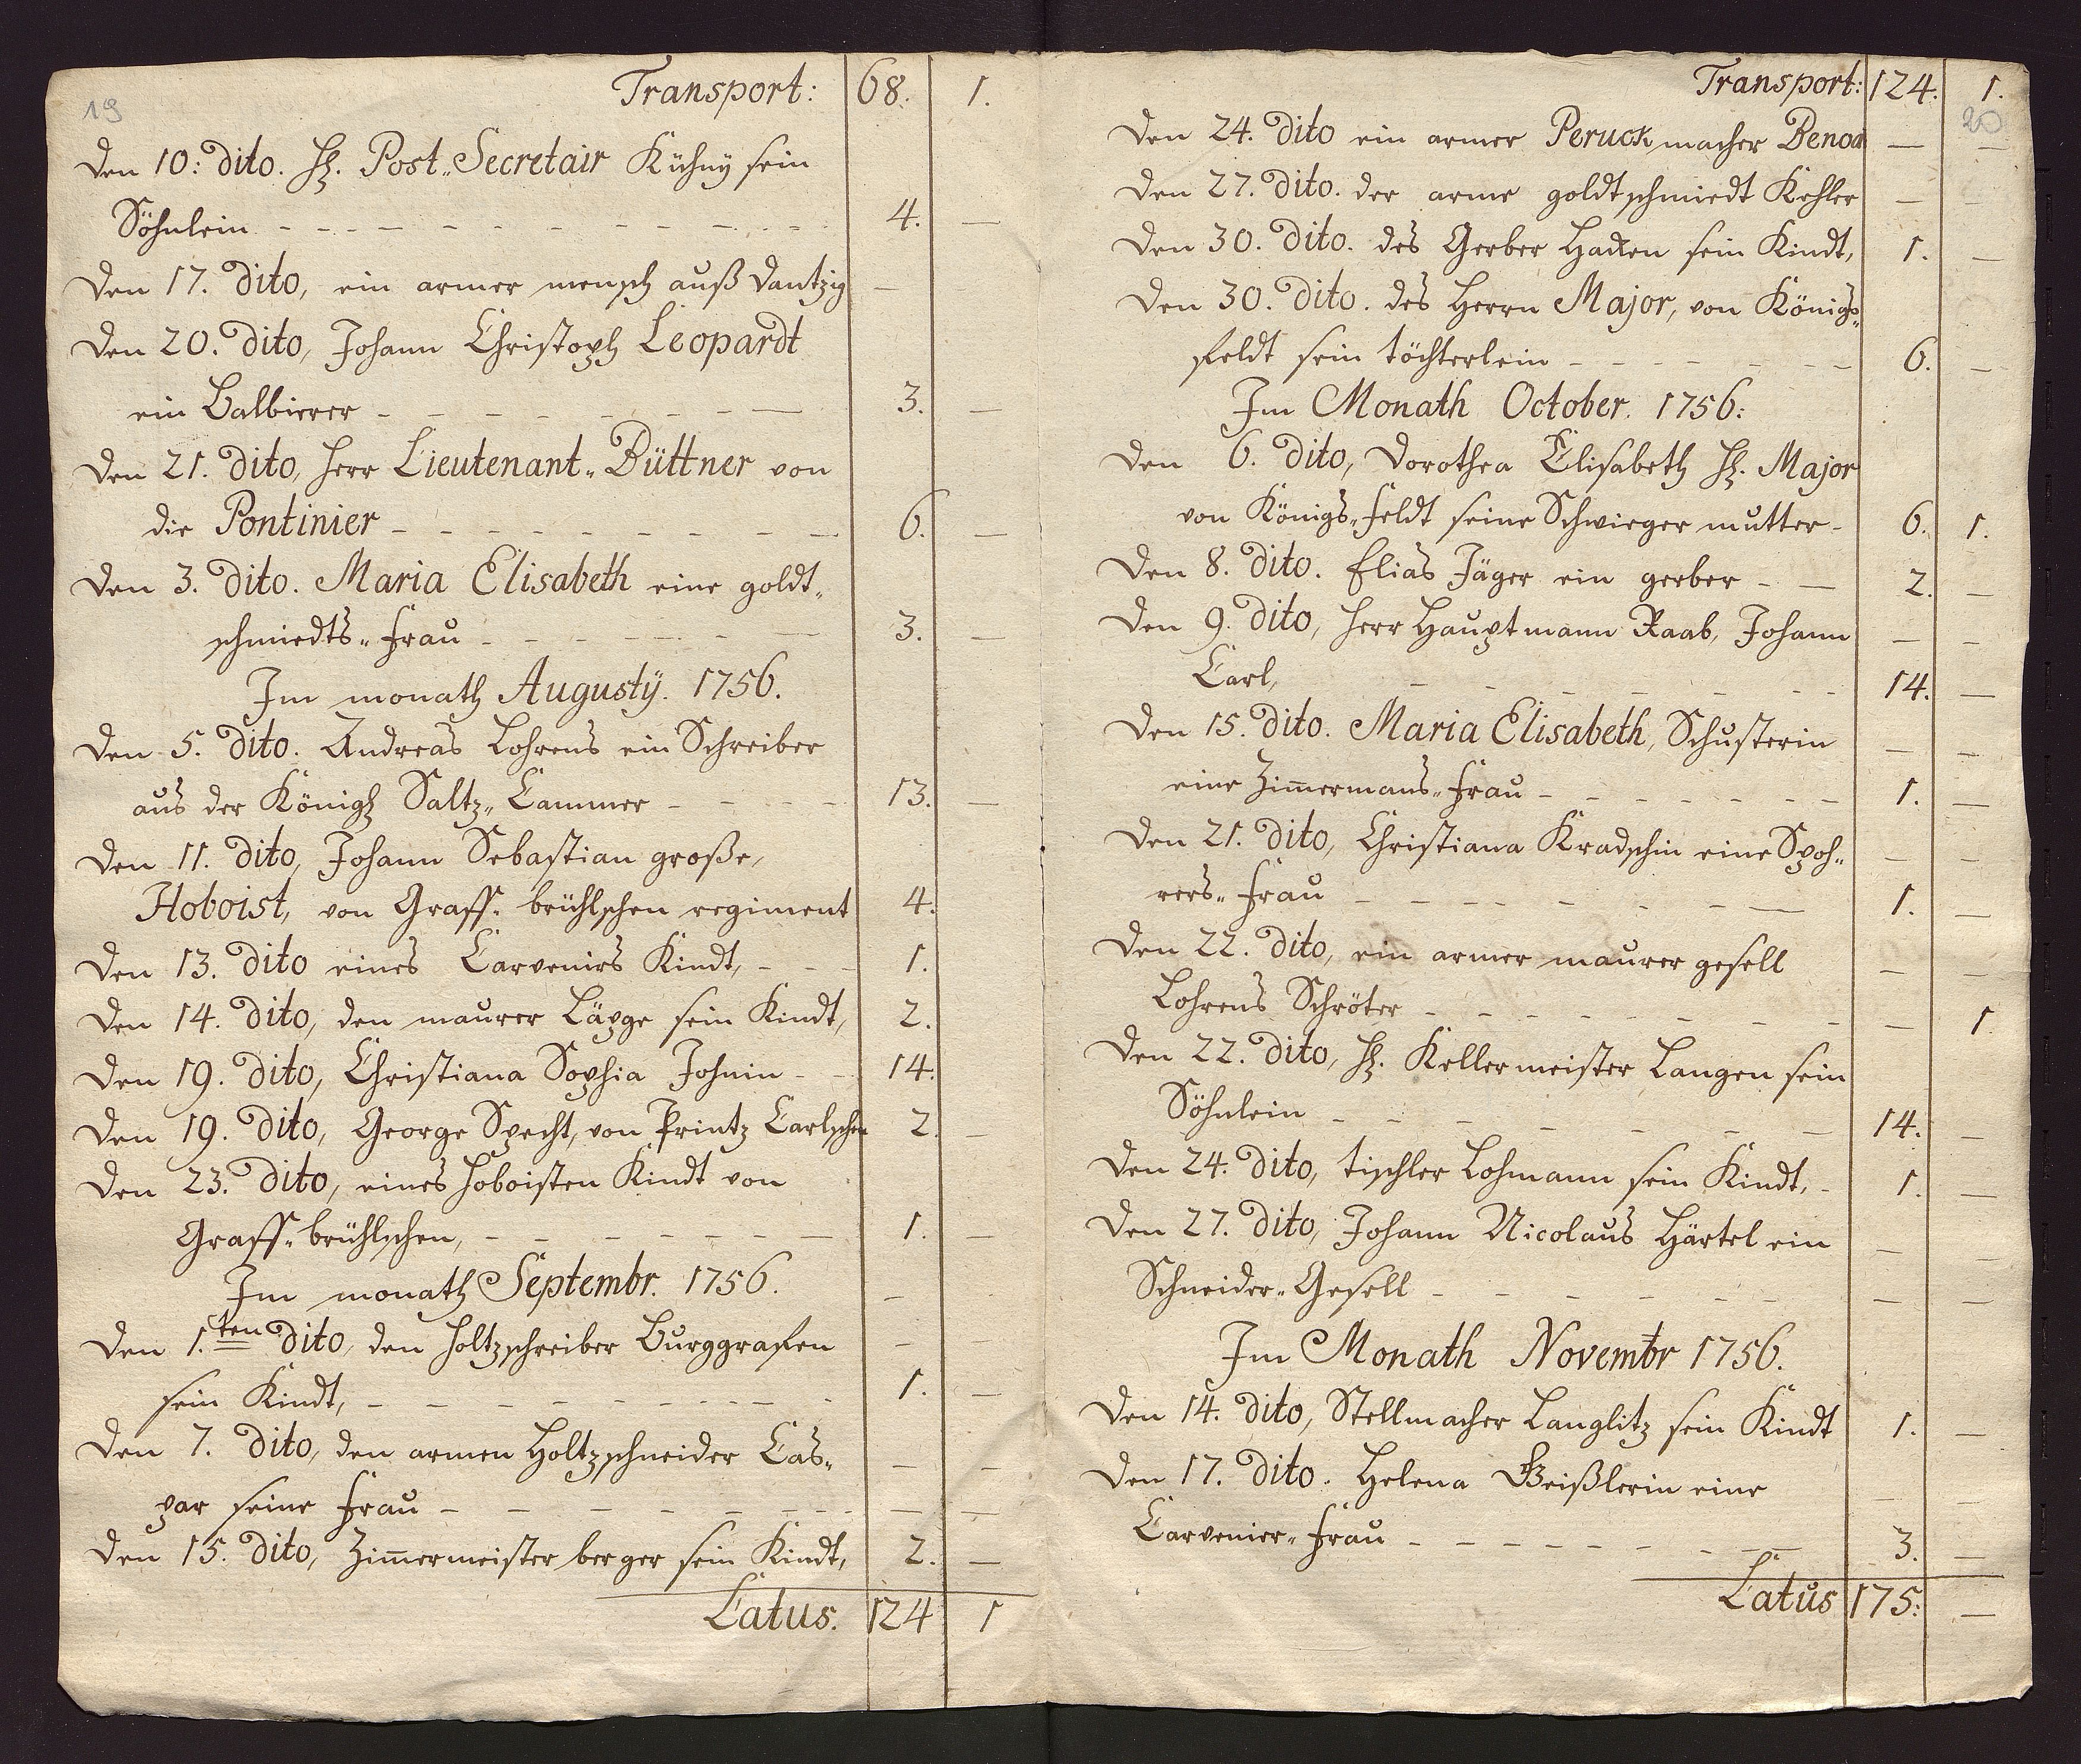 19
Transport: 68. 1.
Den 10: dito. H. Post-Secretair Kühny sein
Söhnlein 4. —
Den 17. dito, ein armer mensch auß Dantzig —
Den 20. dito, Johann Christoph Leopardt
ein Balbierer 3. —
Den 21. dito, Herr Lieutenant-Büttner von
die Pontinier 6. —
Den 3. dito. Maria Elisabeth eine goldt-
schmiedts-frau 3. —
Im monath Augusty. 1756.
Den 5. dito. Andreas Lohrens ein Schreiber
aus der Königl Saltz-Cammer 13. —
Den 11. dito, Johann Sebastian große,
Hoboist, von Graff. brühlschen regiment 4.
Den 13. dito eines Carvenirs Kindt, 1.
Den 14. dito, den maurer Läpge sein Kindt, 2.
Den 19. dito, Christiana Sophia Johnin 14.
Den 19. dito, George Specht, von Printz Carlschen 2. —
Den 23. dito, eines Hoboisten Kindt von
Graff-brühlschen, 1. —
Im monath Septembr. 1756. —
Den 1.ten dito, den Holtzschreiber Burggrafen —
sein Kindt, 1. —
Den 7. dito, den armen Holtzschneider Cas- — —
par seine frau — —
Den 15. dito, Zimmermeister berger sein Kindt, 2. —
Latus. 124 1
Transport: 124. 1.
20
Den 24. dito ein armer Peruckmacher Benoa — —
Den 27. dito. der arme goldtschmiedt Kehler — —
Den 30. dito. des Gerber Hacken sein Kindt, 1. —
Den 30. dito. des Herrn Major, von Königs-
feldt sein töchterlein 6. —
Im Monath October. 1756:
Den 6. dito, Dorothea Elisabeth H. Major
von Königs-feldt seine Schwieger mutter 6. 1.
Den 8. dito. Elias Jäger ein gerber 2. —
Den 9. dito, Herr Hauptmann Raab, Johann — —
Carl, 14. —
Den 15. dito. Maria Elisabeth, Schusterin — —
eine Zimmermans-frau 1. —
Den 21. dito, Christiana Kradschin eine Spoh- — —
rers-frau 1. —
Den 22. dito, ein armer maurer gesell — —
Lohrens Schröter — 1.
Den 22. dito, H. Kellermeister Langen sein
Söhnlein 14. —
Den 24. dito, tischler Lohmann sein Kindt, 1. —
Den 27. dito, Johann Nicolaus Härtel ein — —
Schneider-Gesell — —
Im Monath Novembr 1756.
Den 14. dito, Stellmacher Langlitz sein Kindt 1. —
Den 17. dito. Helena Geißlerin eine — —
Carvenier-frau 3. —
Latus 175: —